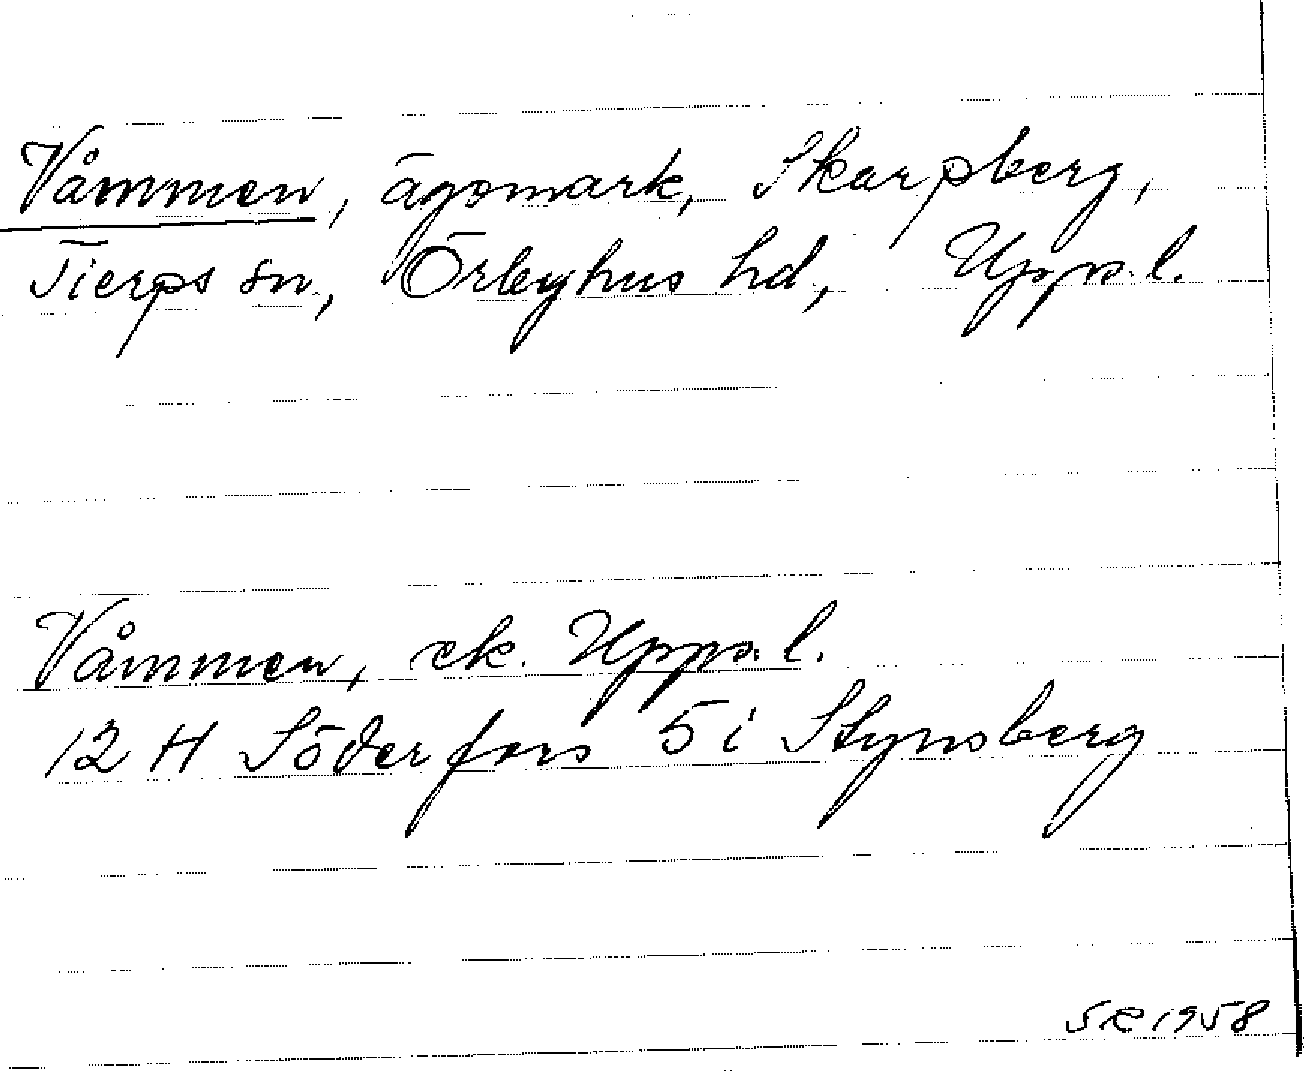 Våmmen, ägomark, Skarpberg,
Tierps sn, Örbyhus hd, Uppl.
Våmmen, ek. Uppl.
12 H Söderfors 5 i Stynsberg
SR 1958